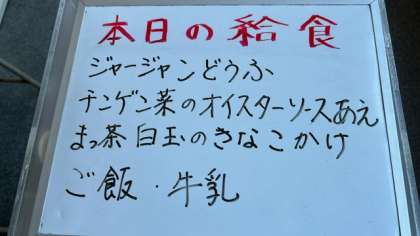 本日の給食
ジャージャンどうふ
チンゲン菜のオイスターソースあえ
まっ茶白玉のきなこかけ
ご飯・牛乳